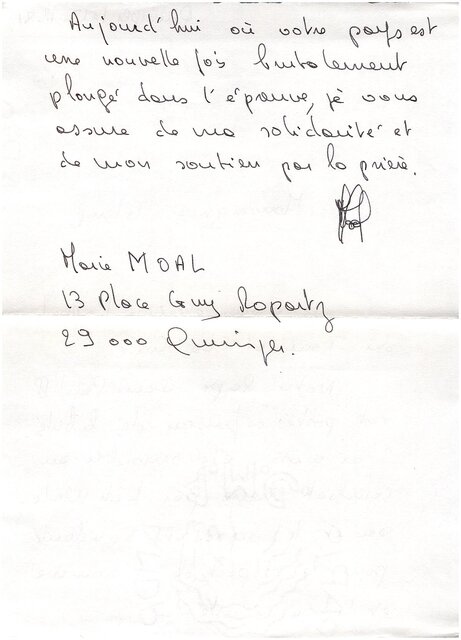 Aujourd'hui où votre pays est
une nouvelle fois brutalement
plongé dans l'épreuve, je vous
assure de ma solidarité et
de mon soutien par la prière.
Marie MOAL
13 Place Guy Ropartz
29 000 Quimper.